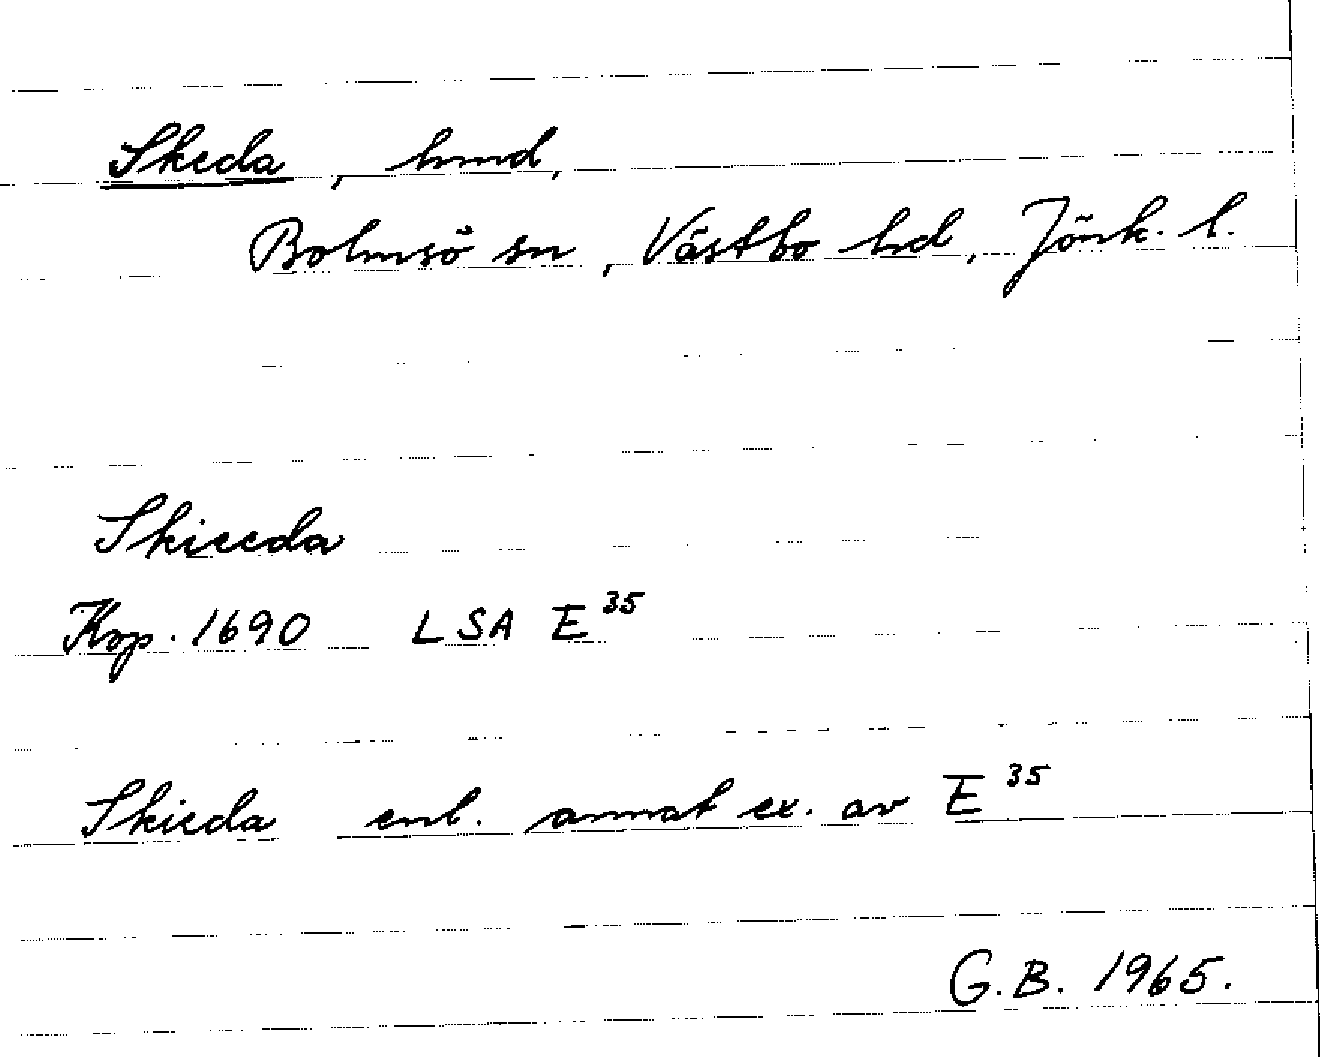 Skeda, hmd,
Bolmsö sn, Västbo hd, Jönk. l.
Skieeda
Kop. 1690 LSA E³⁵
Skieda enl. annat ex. av E³⁵
G.B. 1965.